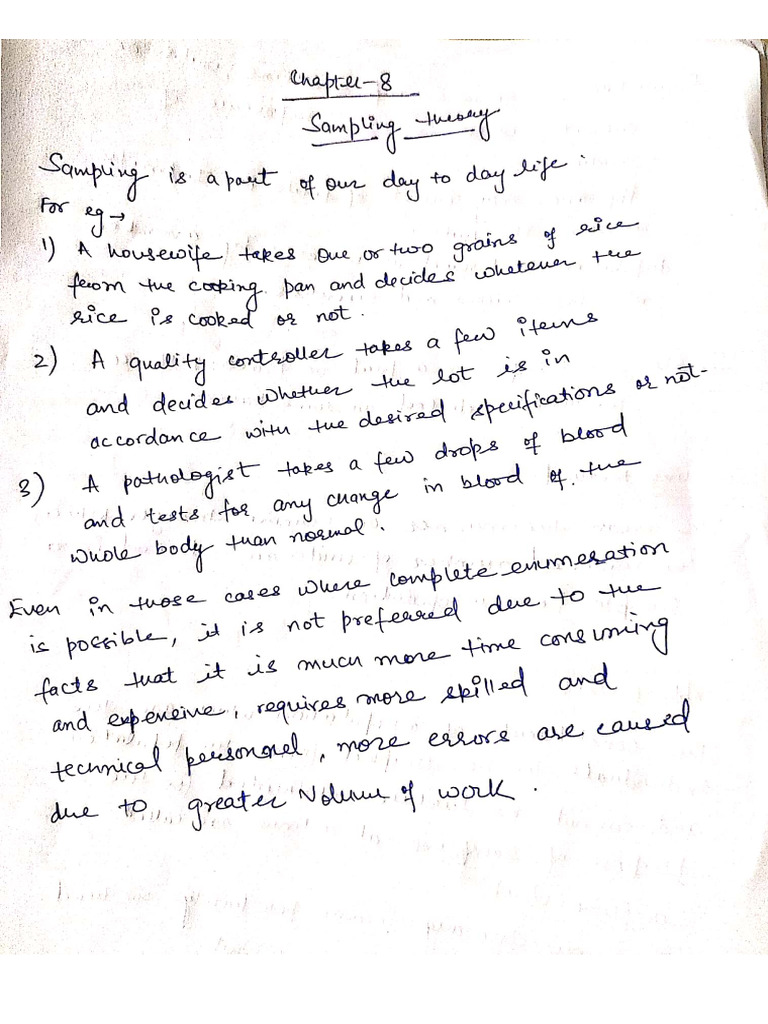 Chapter-8
Sampling theory
Sampling is a part of our day to day life.
For eg →
1) A housewife takes one or two grains of rice
from the cooking pan and decides whetever the
rice is cooked or not.
2) A quality controller takes a few items
and decides whether the lot is in
accordance with the desired specifications or not-
3) A pathologist takes a few drops of blood
and tests for any change in blood of the
whole body than normal.
Even in those cases where complete enumeration
is possible, it is not preferred due to the
facts that it is much more time consuming
and expensive, requires more skilled and
technical personnel, more errors are caused
due to greater Volume of work.